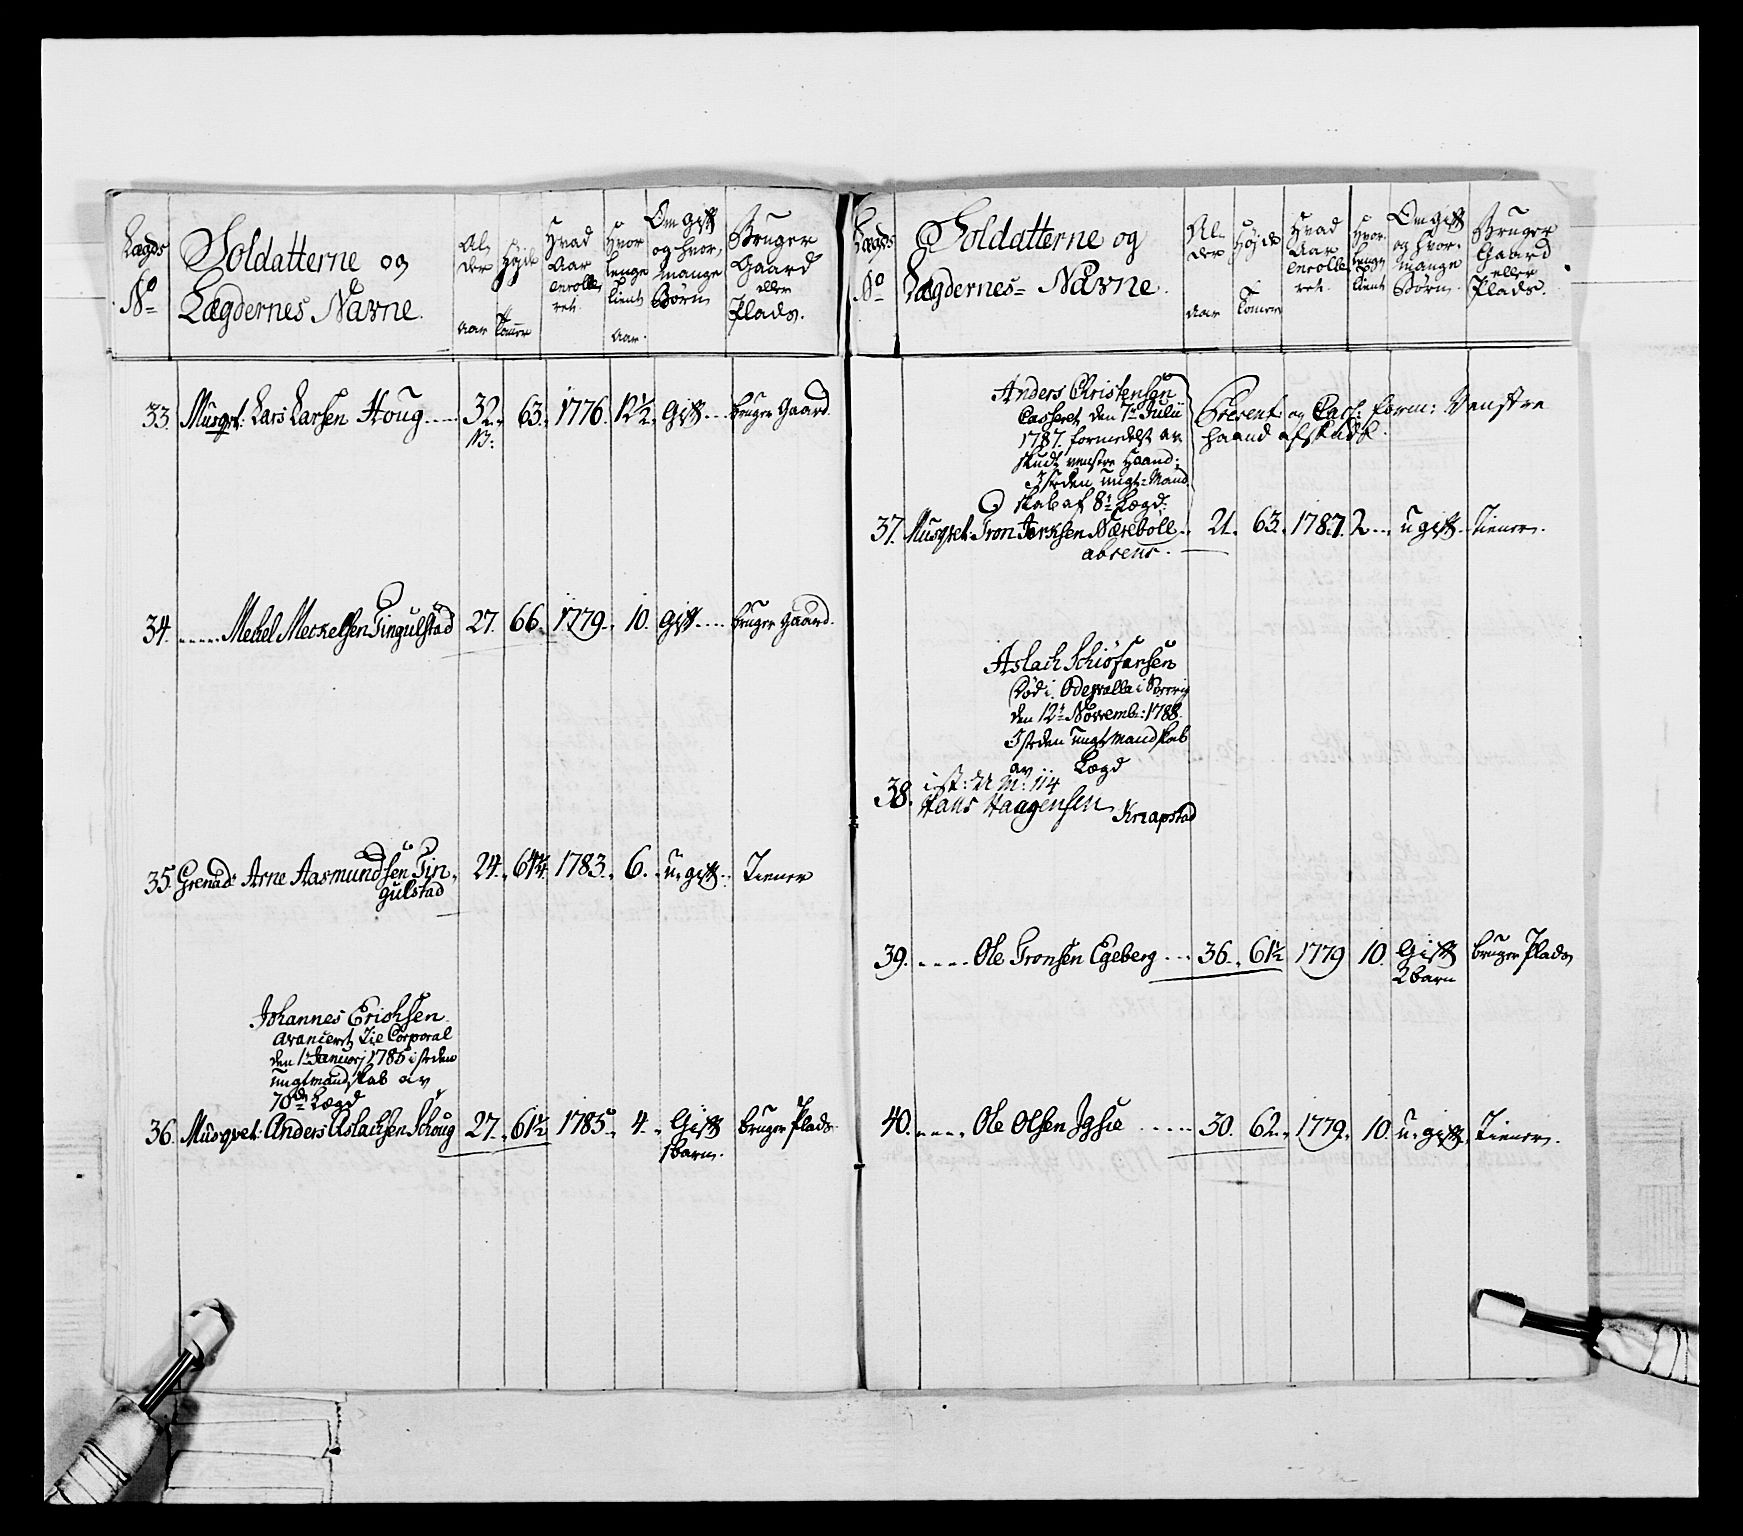 Lægds No
Soldatterne og
Lægdernes Navne.
Al,
der
Aar
Høide
Tommer
Hvad
Aar
enrolle,
ret
Hvor
lenge
tient
Aar.
Om gift
og hvor,
mange
Børn
Bruger
Gaard
eller
Plads.
33. Musqvt: Lars Larsen Houg 32. 63. 1776. 12½. Gift bruger Gaard.
34. Mekel Meckelsen Tingulstad 27. 66. 1779. 10. Gift bruger Gaard.
35. Grenad: Arne Aasmundsen Tin,
gulstad 24. 64¼. 1783. 6. u, gift Tiener
Johannes Erichsen
avanceret til Corporal
den 1 Januarj 1785 i steden
ungtmandskab av
70de Lægd
36. Musqvet: Anders Aslachsen Schoug 27. 61½ 1785. 4. Gift bruger Plads
1 barn.
Lægds No
Soldatterne og
Lægdernes Navne.
Al,
der
Aar
Høide
Tommer
Hvad
Aar
enrolle,
ret.
Hvor
lenge
tient
Om gift
og hvor,
mange
Børn.
Bruger
Gaard
eller
Plads.
Anders Christensen
Casseret den 7de Julii
1787. formedelst av
skudt venstre Haand;
I steden ungt=Mand
skab af 8de Lægd:
Present: og Cass: form: Venstre
haand afskudt.
37. Musqvet: Tron Jerksen Næreboll 21. 63. 1787. 2 ugift Tiener.
absens.
Aslach Schiøfansen
død i Odewalla i Sverrig
den 12te Novemb: 1788.
I steden ungtmandskab
av Lægd
38. i st: U M: 114
Hans Haagensen Knapstad
39. Ole Tronsen Egeberg 36. 61½ 1779 10. Gift bruger Plads
2 barn
40. Ole Olsen Igsie 30. 62. 1779. 10. u, gift. Tiener.